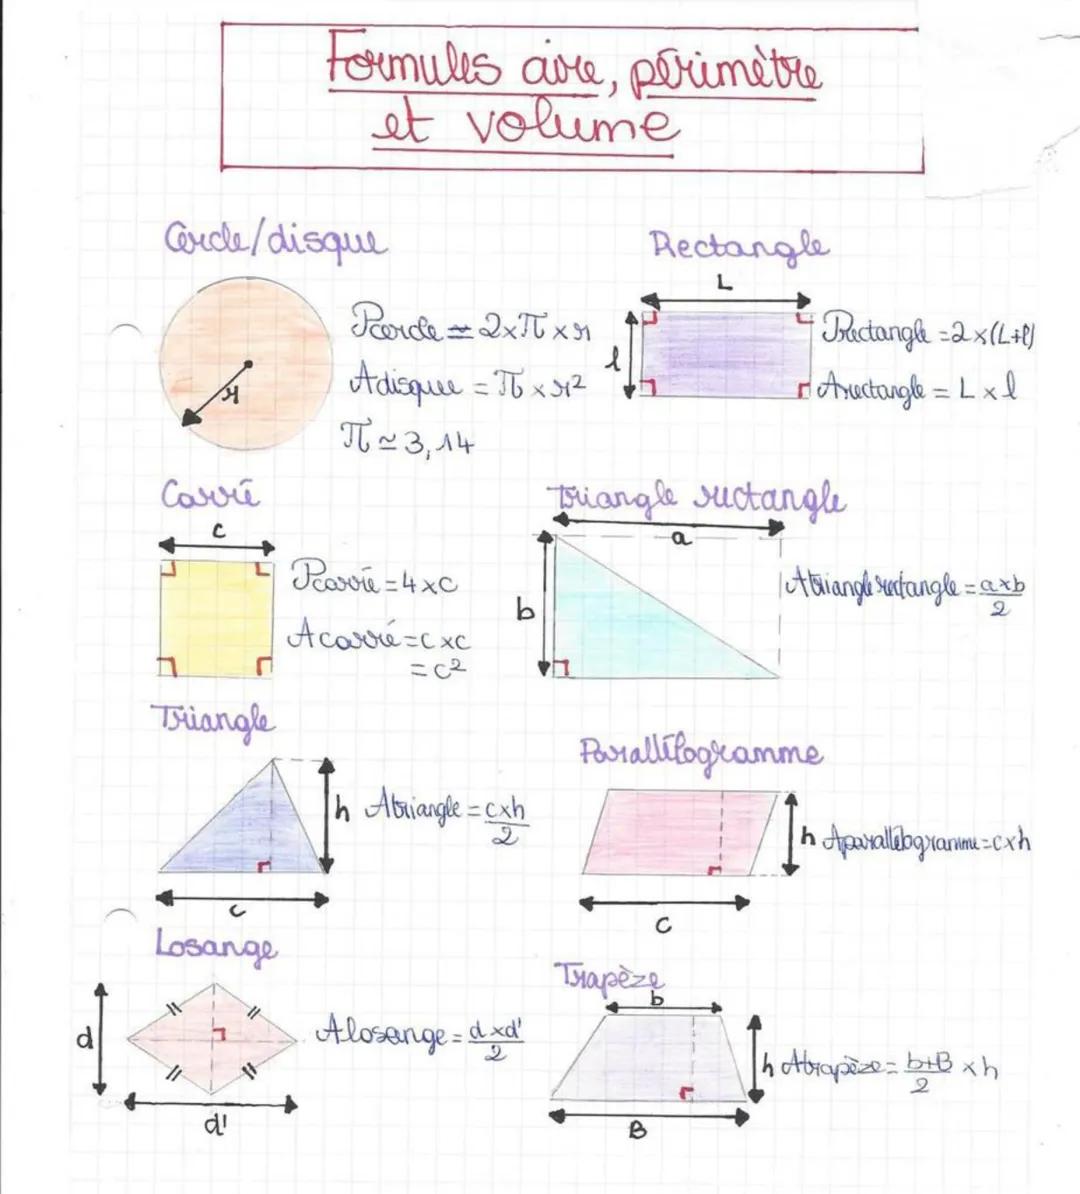 Formules aire, périmètre
et volume
Cercle/disque
r
Pcercle = 2×π×r
Adisque = π×r²
π≃3,14
Rectangle
L
l
Prectangle =2×(L+l)
Arectangle = L×l
Carré
c
Pcarré=4×c
Acarré=c×c
=c²
Triangle rectangle
a
b
Atriangle rectangle = a×b
2
Triangle
h
Atriangle = c×h
2
c
Parallélogramme
h
Aparallélogramme=c×h
c
Losange
d
Alosange = d×d'
2
d'
Trapèze
b
h
Atrapèze = b+B ×h
2
B